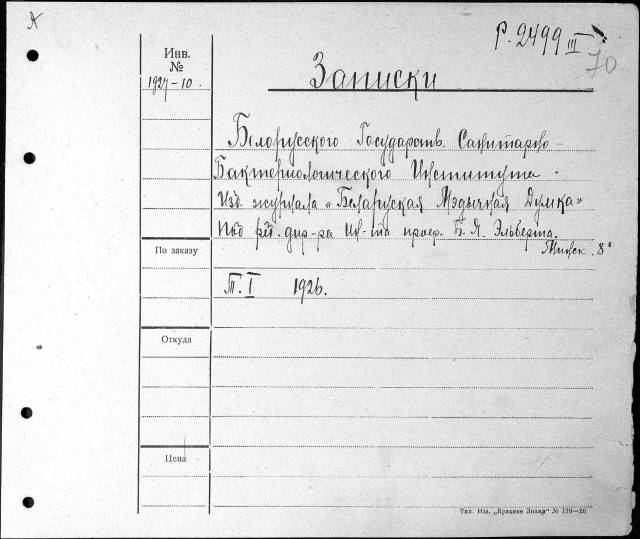 А
Р. 2499 III
70
Инв.
№
1927-10.
Записки
Белорусского Государств. Санитарно-
Бактериологического Института.
Изд. журнала «Беларуская Мэдычная Думка»
Под ред. дир-ра Ин-та проф. Б. Я. Эльберта.
Минск. 8°
По заказу
Т. I 1926.
Откуда
Цена
Тип. Изд. „Красное Знамя“ № 178—26